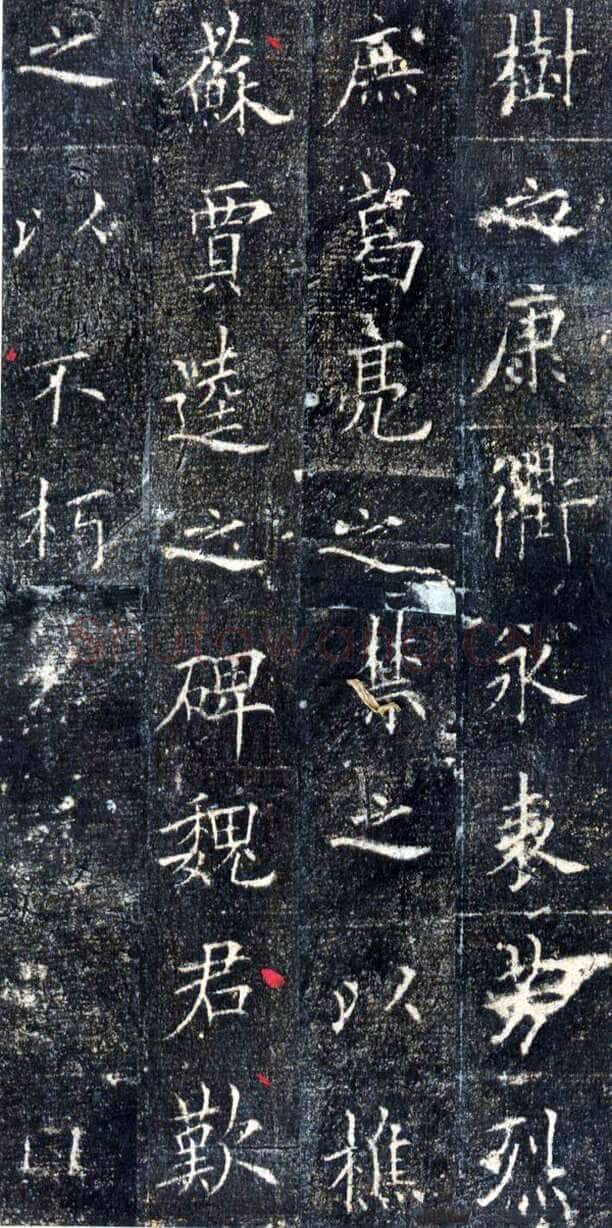 樹之康衢永表芳烈
庶葛亮之禁之以樵
蘇賈逵之碑魏君歎
之以不朽
shufawang.CN